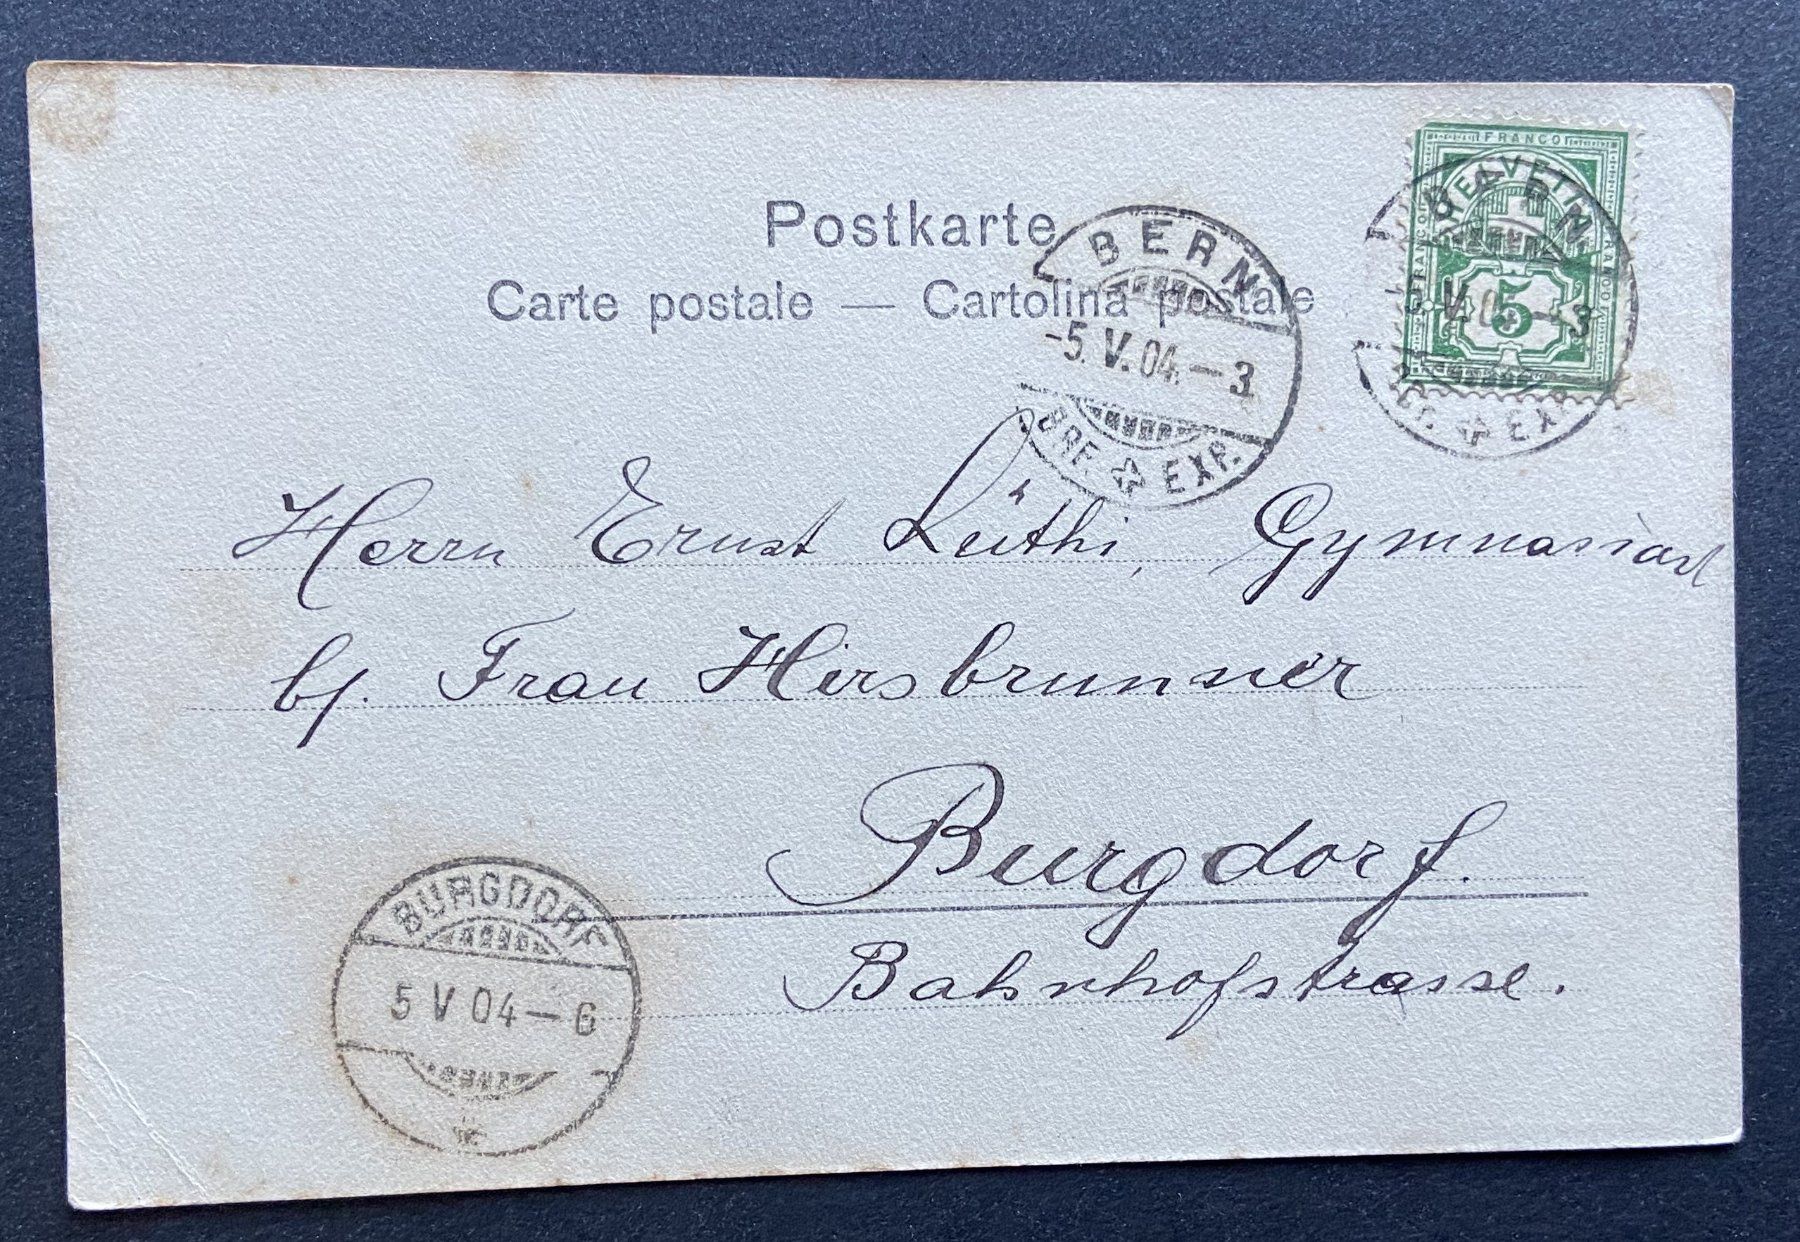 Postkarte
Carte postale — Cartolina postale
FRANCO
HELVETIA
FRANCO
FRANCO
5
BERN
5. V. 04 – 3
EXP.
BERN
-5. V. 04. – 3.
BRF. ☆ EXP.
Herrn Ernst Lüthi, Gymnasiast
bj. Frau Hirsbrunner
Burgdorf.
Bahnhofstrasse.
BURGDORF
5 V 04 – 6